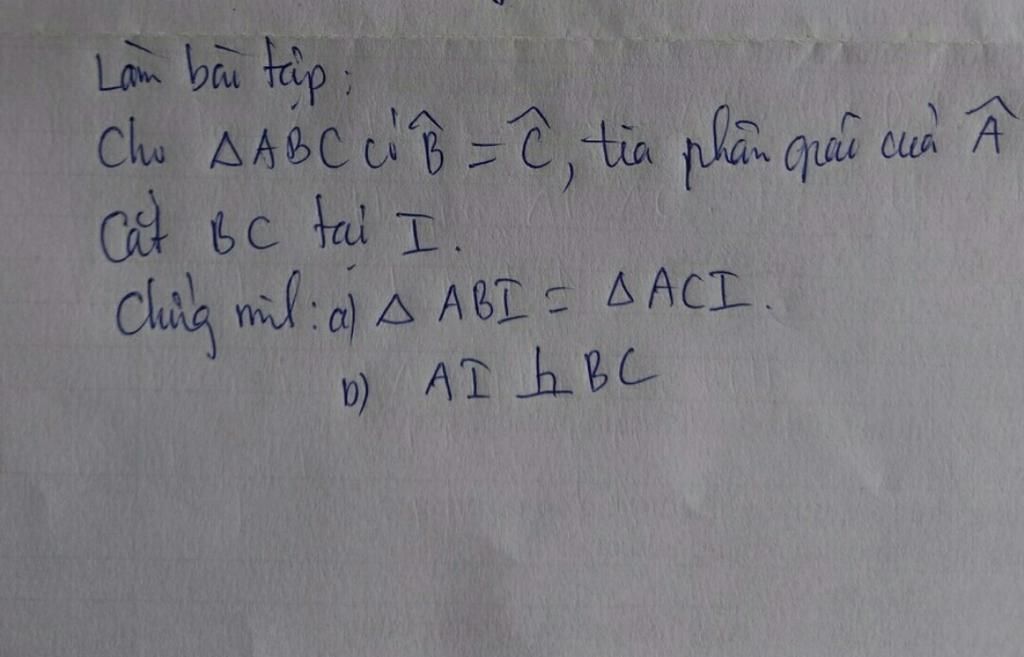 Làm bài tập:
Cho ΔABC có B̂ = Ĉ, tia phân giác của Â
Cắt BC tại I.
Chứng minh: a) Δ ABI = Δ ACI.
b) AI ⊥ BC